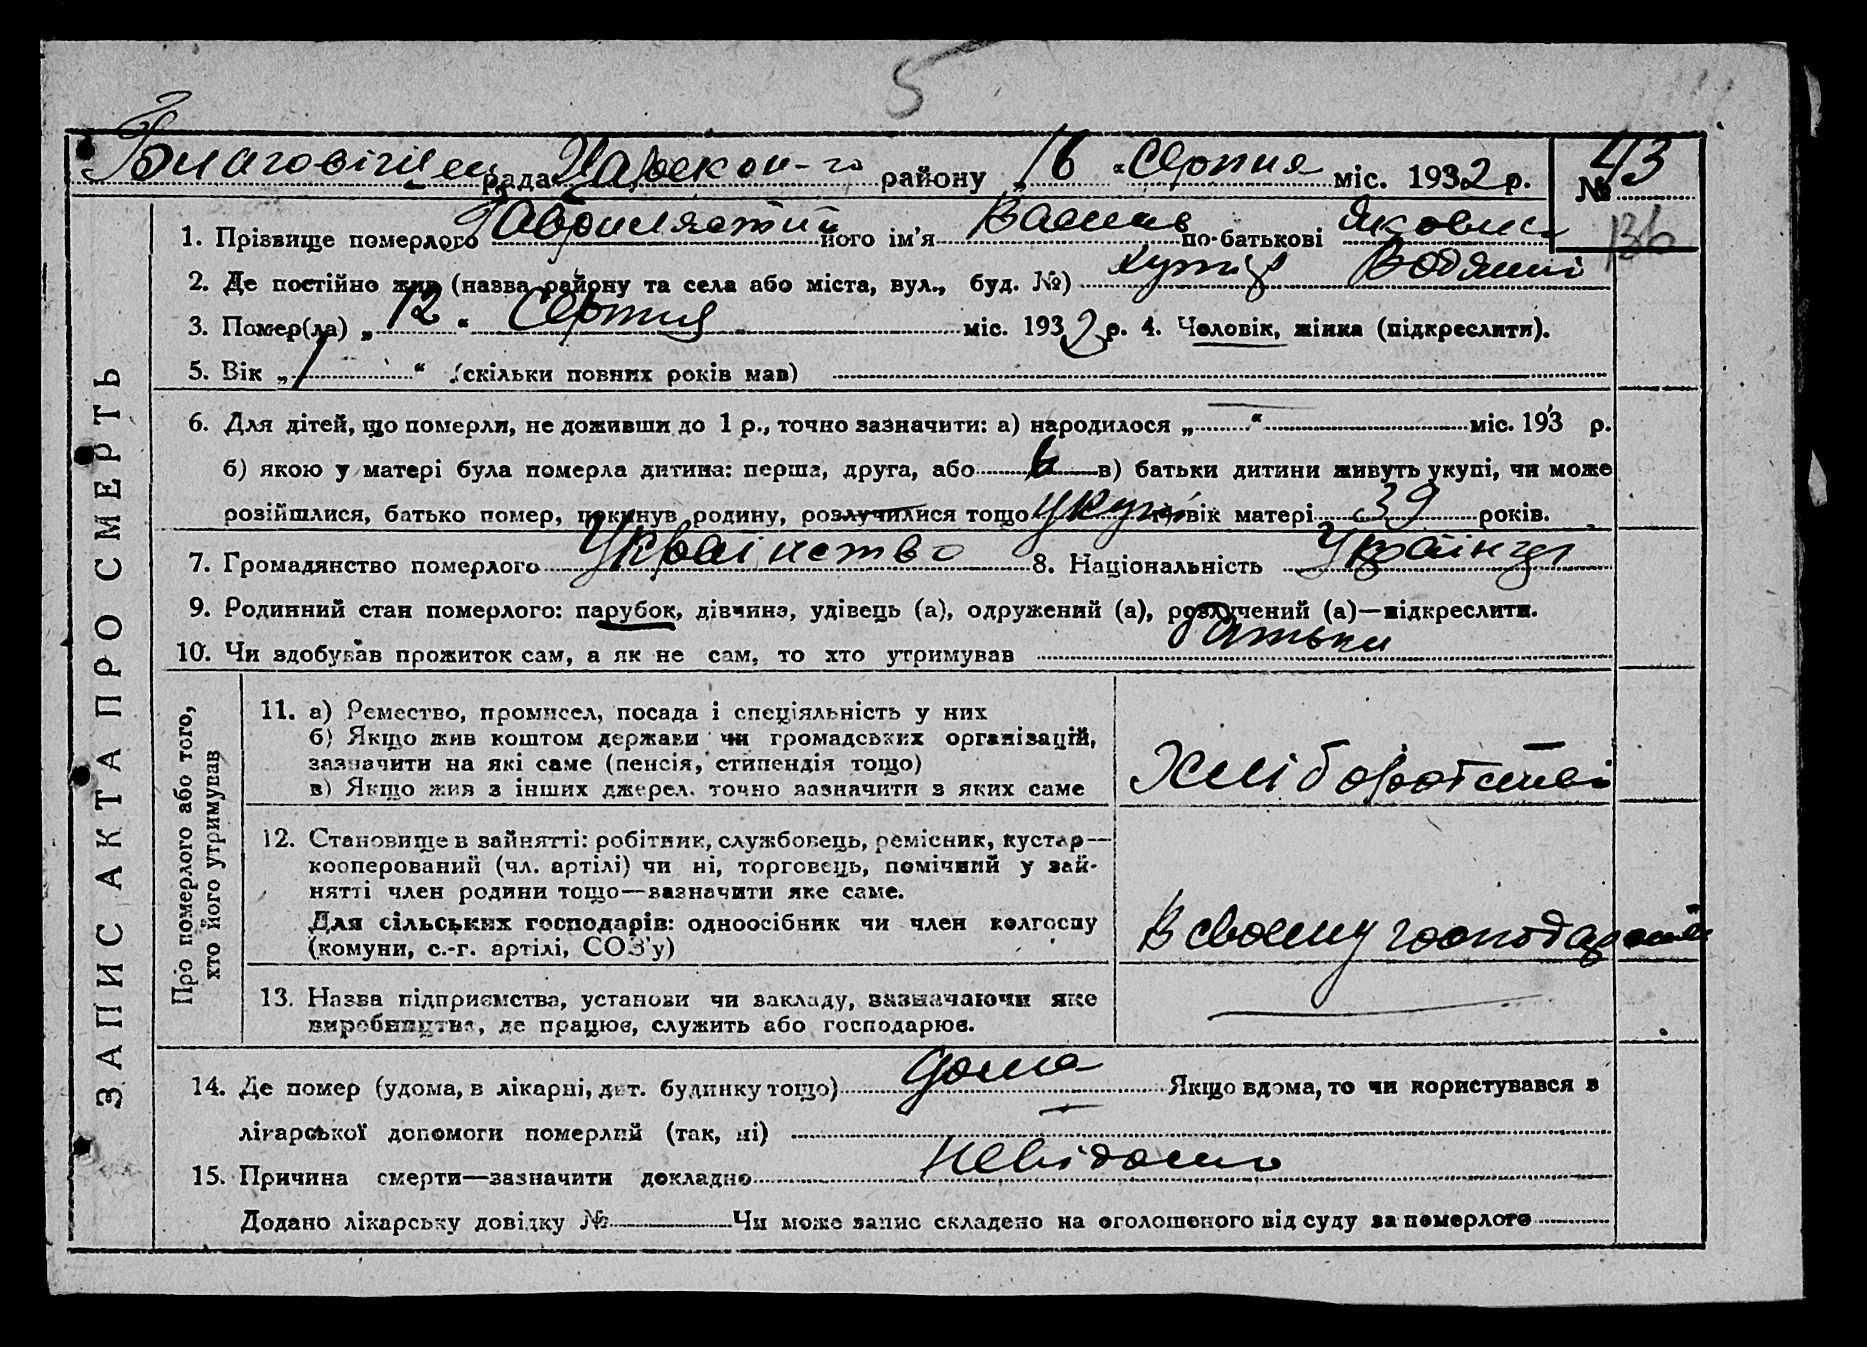 5
Благовіщен рада Царекон-го району „ 16 “ Серпня міс. 1932 р. № 43
136
1. Прізвище померлого його ім'я Василь по-батькові Якович
2. Де постійно жив (назва району та села або міста, вул., буд. №) хутір Водяний
3. Помер(ла) „ 12 “ Серпня міс. 1932 р. 4. Чоловік, жінка (підкреслити).
5. Вік „ 1 “ (скільки повних років мав)
6. Для дітей, що померли, не доживши до 1 р., точно зазначити: а) народилося „ “ міс. 193 р.
б) якою у матері була померла дитина: перша, друга, або 6 в) батьки дитини живуть укупі, чи може
розійшлися, батько помер, покинув родину, розлучилися тощо укупі г) вік матері 39 років.
7. Громадянство померлого Українство 8. Національність Українец
9. Родинний стан померлого: парубок, дівчина, удівець (а), одружений (а), розлучений (а)—підкреслити.
10. Чи здобував прожиток сам, а як не сам, то хто утримував батьки
ЗАПИС АКТА ПРО СМЕРТЬ
Про померлого або того,
хто його утримував
11. а) Ремество, промисел, посада і спеціяльність у них
б) Якщо жив коштом держави чи громадських організацій,
зазначити на які саме (пенсія, стипендія тощо)
в) Якщо жив з інших джерел, точно зазначити з яких саме
Хліборобстві
12. Становище в зайнятті: робітник, службовець, ремісник, кустар—
кооперований (чл. артілі) чи ні, торговець, помічний у зай-
нятті член родини тощо—зазначити яке саме.
Для сільських господарів: одноосібник чи член колгоспу
(комуни, с.-г. артілі, СОЗ'у)
В своєму господарстві
13. Назва підприємства, установи чи закладу, зазначаючи яке
виробництва, де працює, служить або господарює.
14. Де помер (удома, в лікарні, дит. будинку тощо) дома Якщо вдома, то чи користувався з
лікарської допомоги померлий (так, ні)
15. Причина смерти—зазначити докладно невідомо
Додано лікарську довідку № Чи може запис складено на оголошеного від суду за померлого